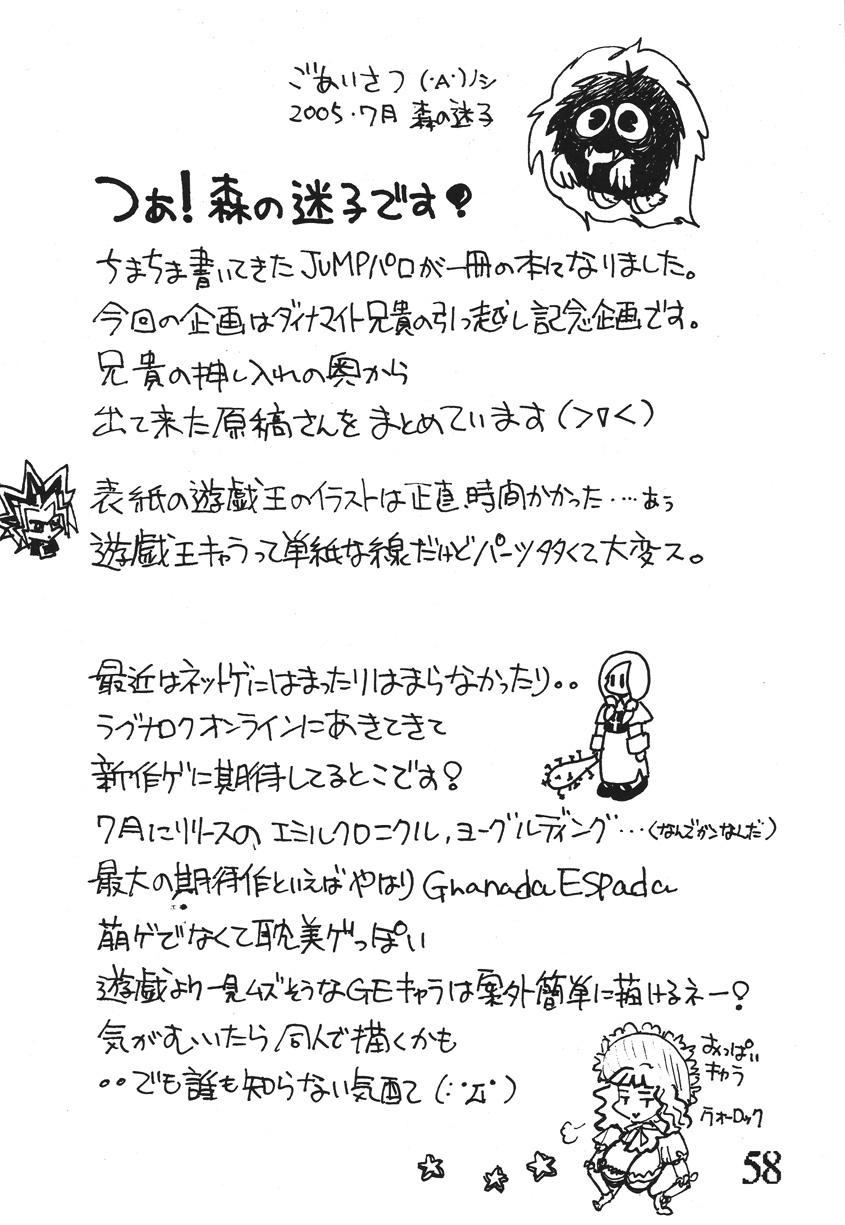 ごあいさつ (・A・)ノシ
2005・7月 森の迷子
つぁ!森の迷子です?
ちまちま書いてきたJUMPパロが一冊の本になりました。
今回の企画はダイナマイト兄貴の引っ越し記念企画です。
兄貴の押し入れの奥から
出て来た原稿さんをまとめています(>∇<)
表紙の遊戯王のイラストは正直時間かかった‥‥あぅ
遊戯王キャラって単純な線だけどパーツ多くて大変ス。
最近はネットゲにはまったりはまらなかったり。。
ラグナロクオンラインにあきてきて
新作ゲに期待してるとこです?
7月にリリースの、エミルクロニクル,ヨーグルディング…(なんでかンなんだ)
最大の期待作といえばやはりGranada ESPada
萌ゲでなくて耽美ゲっぽい
遊戯より一見ムズそうなGEキャラは案外簡単に描けるネー?
気がむいたら同人で描くかも
。。でも誰も知らない気配て(;゚Д゚)
おっぱい
キャラ
ウォーロック
58